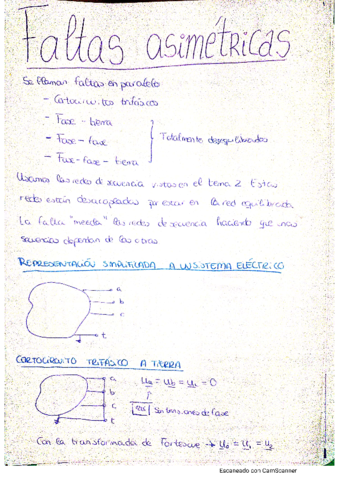 Faltas asimétricas
Se llaman faltas en paralelo:
- Cortocircuitos trifásicos
- Fase - tierra
- Fase - fase
Totalmente desequilibrados
- Fase - fase - tierra
Usamos las redes de secuencia vistas en el tema 2. Estas
redes están desacopladas por estar en la red equilibrada
La falta "mezcla" las redes de secuencia haciendo que unas
secuencias dependan de las otras
REPRESENTACIÓN SIMPLIFICADA A UN SISTEMA ELÉCTRICO
a
b
c
t
CORTOCIRCUITO TRIFÁSICO A TIERRA
a
b
c
t
Ua = Ub = Uc = 0
Sin tensiones de fase
Con la transformada de Fortescue →
Escaneado con CamScanner